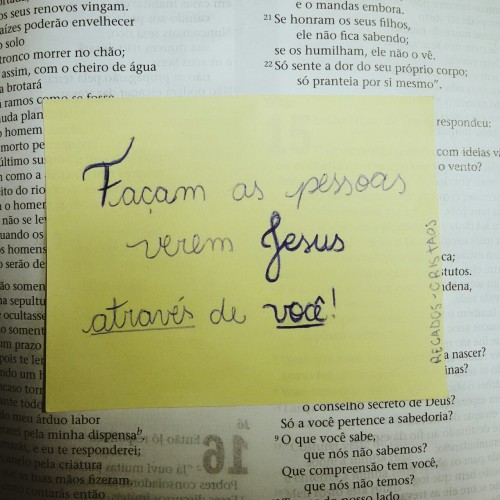 os seus renovos vingam.
aízes poderão envelhecer
o solo
tronco morrer no chão;
assim, com o cheiro de água
a brotará
ramos como se fosse
uda plan
o homem
morto pe
último su
m como a
eito do rio
o home
não se le
uando os
os homens
o serão de
ão somen
a sepultu
e ocultasse
o soment
um prazo
pois te le
ndo um h
caso torn
ante tod
do meu árduo labor
pela minha dispensa
, e eu te responderei;
pela criatura
as mãos fizeram.
contarás então
e o mandas embora.
21 Se honram os seus filhos,
ele não fica sabendo;
se os humilham, ele não o vê.
22 Só sente a dor do seu próprio corpo;
só pranteia por si mesmo".
respondeu:
com ideias vã
o vento?
ca;
tutos.
dena,
a nascer?
inas?
o conselho secreto de Deus?
Só a você pertence a sabedoria?
9 O que você sabe,
que nós não sabemos?
Que compreensão tem você,
que nós não temos?
do nosso lado
Façam as pessoas
verem Jesus
através de você!
RECADOS-CRISTÃOS
Jó
16
Então Jó